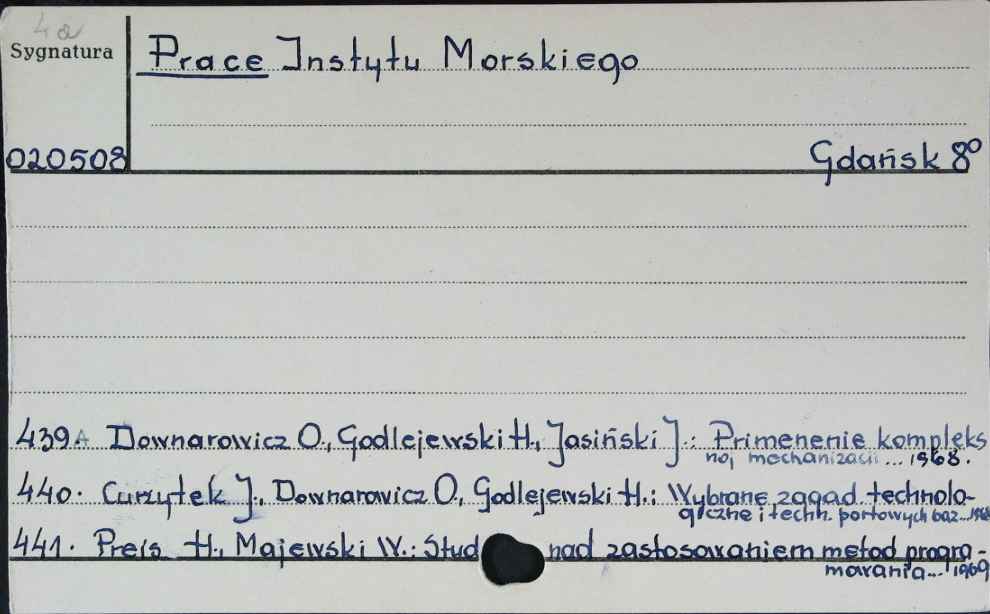 4a
Sygnatura
Prace Instytu Morskiego
020508
Gdańsk 8°
439A Downarowicz O., Godlejewski H., Jasiński J.: Primenenie kompleks
noj mechanizacii ... 1968.
440. Curzytek J., Downarowicz O., Godlejewski H.: Wybrane zagad. technolo-
giczne i techn. portowych baz...1968
441. Preis H., Majewski W.: Stud nad zastosowaniem metod progra-
mowania... 1969